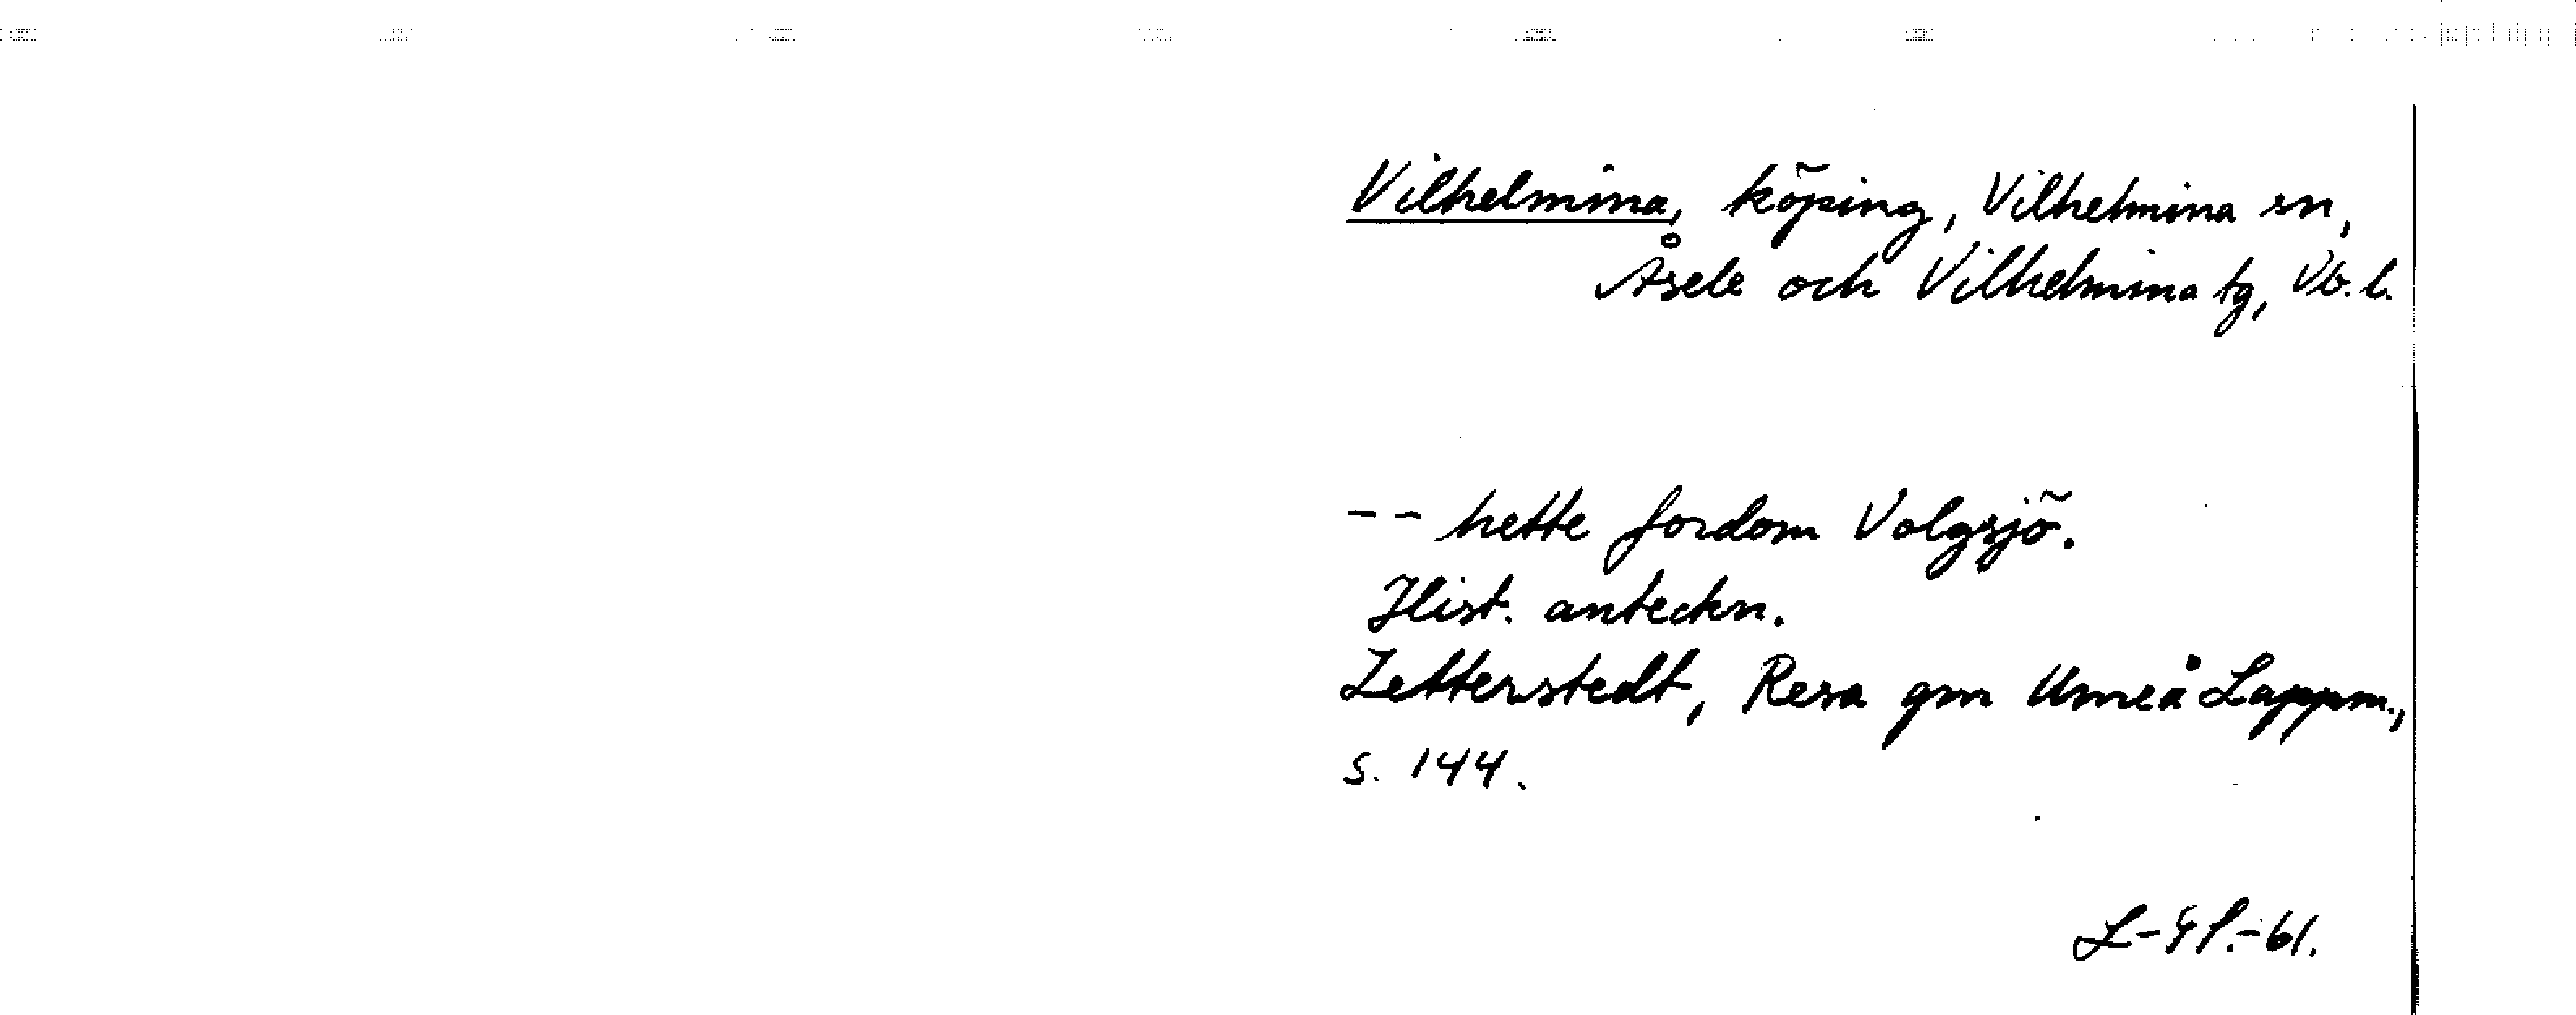 Vilhelmina, köping, Vilhelmina sn,
Åsele och Vilhelmina tg, Vb. l.
-- hette fordom Volgsjö.
Hist. anteckn.
Zetterstedt, Resa gm Umeå Lappm.,
s. 144.